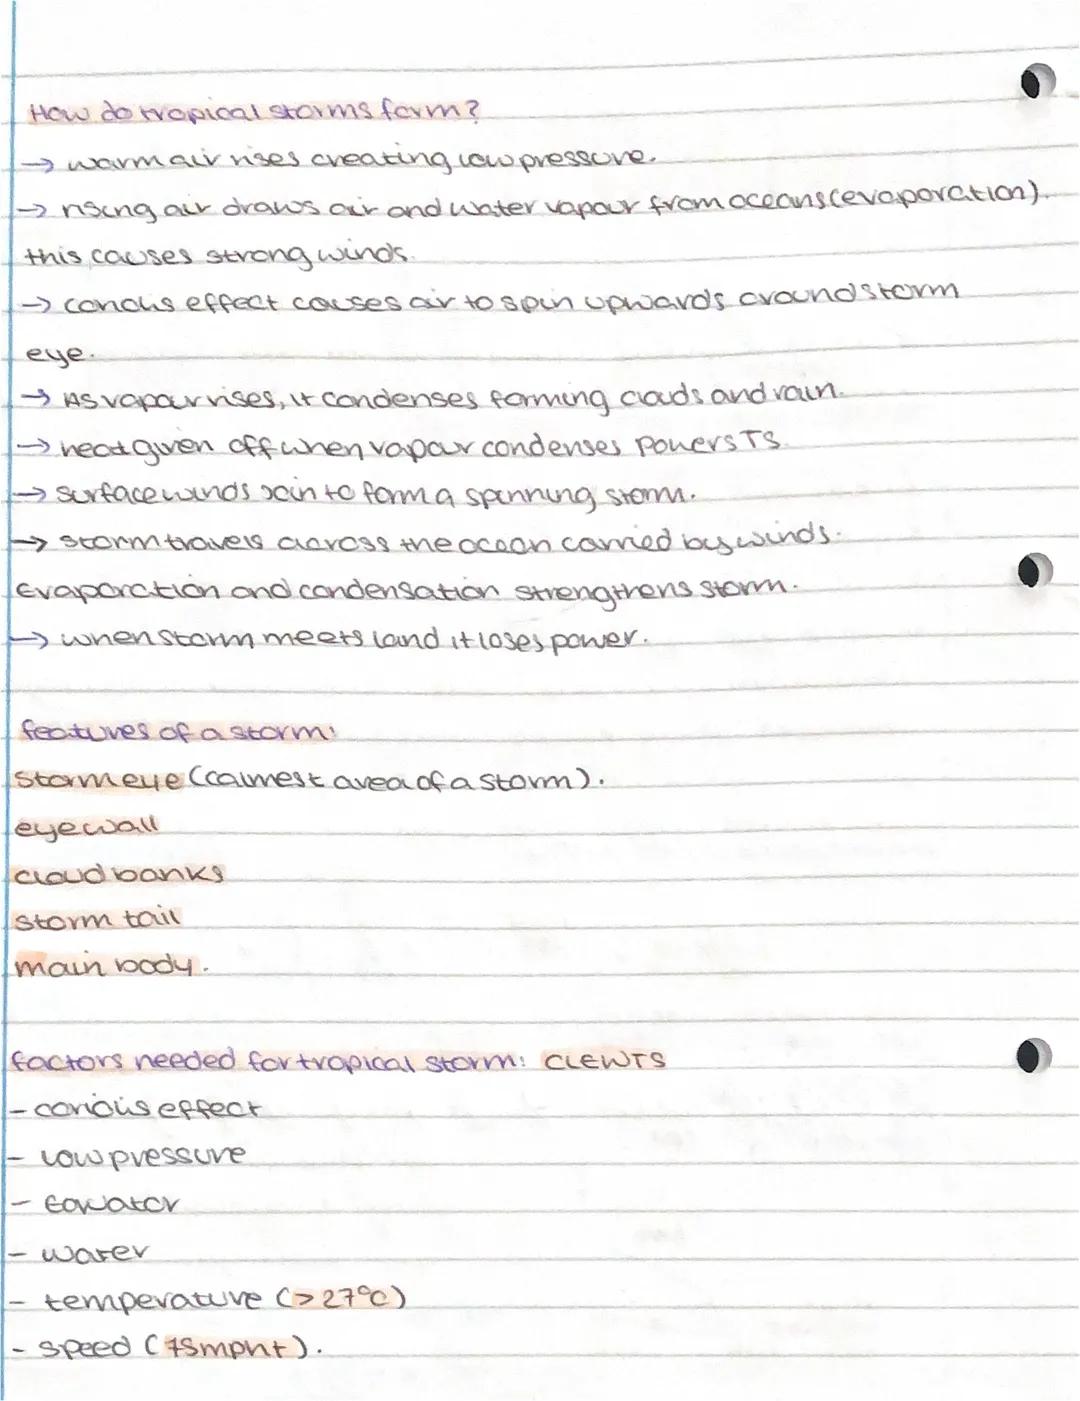 How do tropical storms form?
→ warm air rises creating low pressure.
→ rising air draws air and water vapour from oceans (evaporation).
this causes strong winds.
→ coriolis effect causes air to spin upwards around storm
eye.
→ As vapour rises, it condenses forming clouds and rain.
→ heat given off when vapour condenses powers TS.
→ surface winds join to form a spinning storm.
→ storm travels across the ocean carried by winds.
Evaporation and condensation strengthens storm.
→ when storm meets land it loses power.
features of a storm:
Storm eye (calmest area of a storm).
eye wall
cloud banks
storm tail
main body.
factors needed for tropical storm: CLEWTS
- coriolis effect
- low pressure
- Eqwator
- water
- temperature (>27°C)
- speed (75mph+).